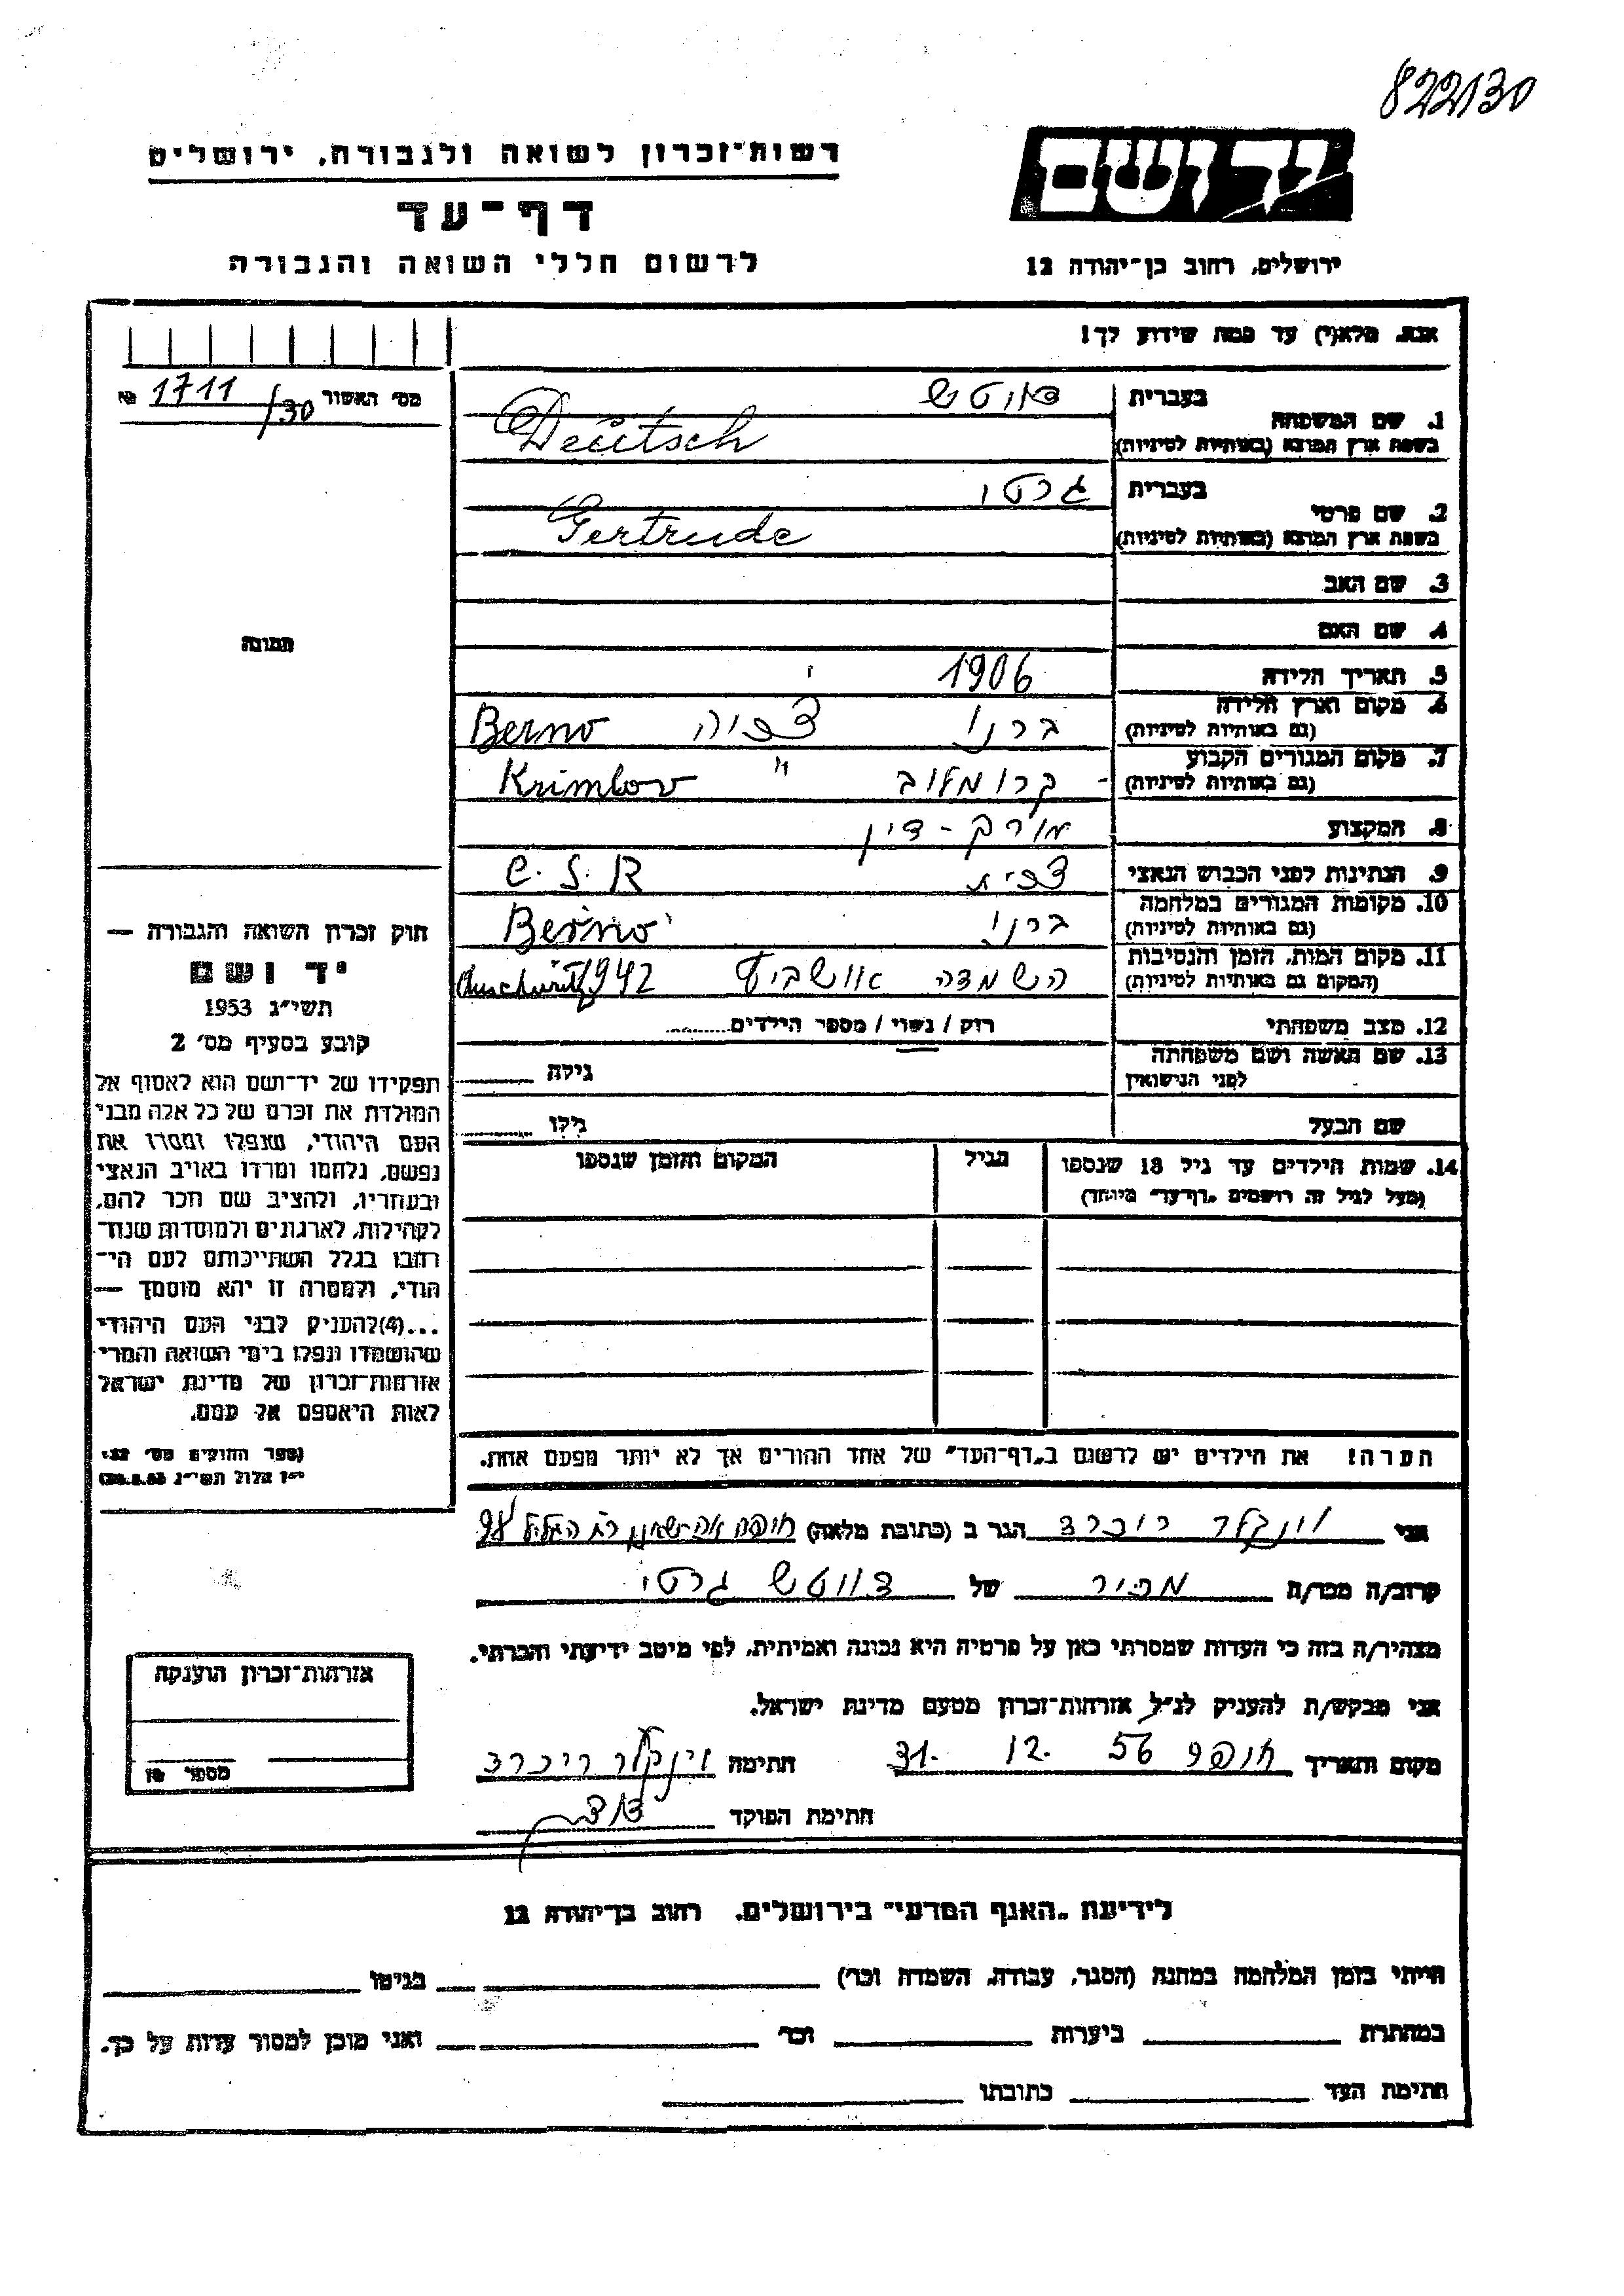 822130
רשות־זכרון לשואה ולגבורה, ירושלים
יד ושם
דף־עד
לרשום חללי השואה והגבורה
ירושלים, רחוב בן־יהודה 12
אנא, מלא(י) עד כמה שידוע לך!
מס׳ האשור 1711/30 №
1. שם המשפחה בעברית דויטש
בשפת ארץ המוצא (באותיות לטיניות) Deutsch
2. שם פרטי בעברית גרטי
בשפת ארץ המוצא (באותיות לטיניות) Gertrude
3. שם האב
4. שם האם
תמונה
5. תאריך הלידה 1906
6. מקום וארץ הלידה
(גם באותיות לטיניות) ברנו Berno
7. מקום המגורים הקבוע
(גם באותיות לטיניות) קרומלוב " Krimlov
8. המקצוע עורך-דין
9. הנתינות לפני הכבוש הנאצי צכית C.S.R
10. מקומות המגורים במלחמה
(גם באותיות לטיניות) ברנו Berno
11. מקום המות, הזמן והנסיבות
(המקום גם באותיות לטיניות) השמדה אושביץ 1942 Auschwitz
12. מצב משפחתי רווק / נשוי / מספר הילדים
13. שם האשה ושם משפחתה
לפני הנישואין גילה
שם הבעל גילו
14. שמות הילדים עד גיל 18 שנספו הגיל המקום והזמן שנספו
(מעל לגיל זה רושמים „דף־עד" מיוחד)
חוק זכרון השואה והגבורה —
יד ושם
תשי״ג 1953
קובע בסעיף מס׳ 2
תפקידו של יד־ושם הוא לאסוף אל
המולדת את זכרם של כל אלה מבני
העם היהודי, שנפלו ומסרו את
נפשם, נלחמו ומרדו באויב הנאצי
ובעוזריו, ולהציב שם וזכר להם,
לקהילות, לארגונים ולמוסדות שנח־
רבו בגלל השתייכותם לעם הי־
הודי, ולמטרה זו יהא מוסמך —
...(4) להעניק לבני העם היהודי
שהושמדו ונפלו בימי השואה והמרי
אזרחות־זכרון של מדינת ישראל
לאות היאספם אל עמם.
(ספר החוקים מס׳ 132,
י״ז אלול תשי״ג 28.8.53)
הערה! את הילדים יש לרשום ב„דף־העד" של אחד ההורים אך לא יותר מפעם אחת.
אני וינקלר ריכרד הגר ב (כתובת מלאה) חיפה
קרוב/ה מכר/ה מכיר של דויטש גרטי
מצהיר/ה בזה כי העדות שמסרתי כאן על פרטיה היא נכונה ואמיתית, לפי מיטב ידיעתי והכרתי.
אני מבקש/ת להעניק לנ״ל אזרחות־זכרון מטעם מדינת ישראל.
מקום ותאריך חיפה 31. 12. 56 חתימה וינקלר ריכרד
חתימת הפוקד
אזרחות־זכרון הוענקה
מספר №
לידיעת „האגף המדעי" בירושלים, רחוב בן־יהודה 12
הייתי בזמן המלחמה במחנה (הסגר, עבודה, השמדה וכו׳) בגיטו
במחתרת ביערות וכו׳ ואני מוכן למסור עדות על כך.
חתימת העד כתובתו